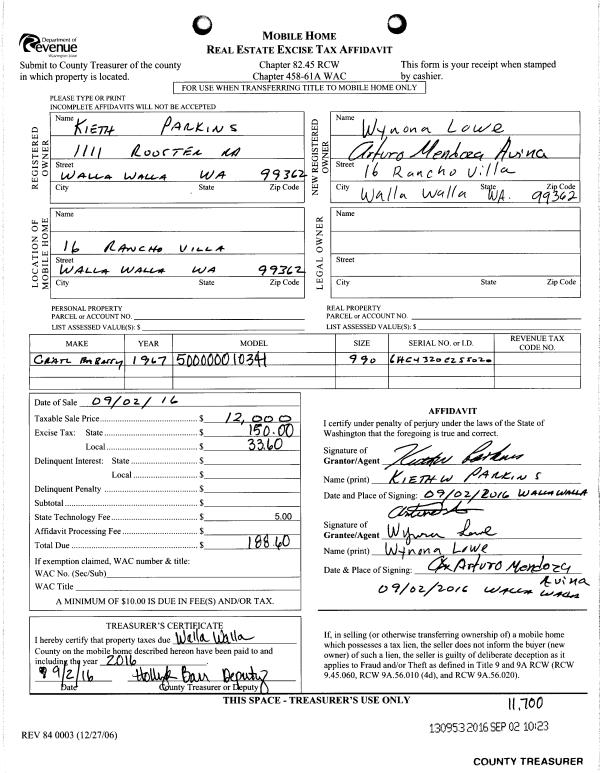 Department of
Revenue
Washington State
MOBILE HOME
REAL ESTATE EXCISE TAX AFFIDAVIT
Submit to County Treasurer of the county
in which property is located.
Chapter 82.45 RCW
Chapter 458-61A WAC
This form is your receipt when stamped
by cashier.
FOR USE WHEN TRANSFERRING TITLE TO MOBILE HOME ONLY
PLEASE TYPE OR PRINT
INCOMPLETE AFFIDAVITS WILL NOT BE ACCEPTED
REGISTERED OWNER
Name KIETH PARKINS
1111 ROOSTER RD
Street
WALLA WALLA WA 99362
City State Zip Code
NEW REGISTERED OWNER
Name Wynona Lowe
Arturo Mendoza Avina
Street 16 Rancho Villa
Walla Walla WA. 99362
City State Zip Code
LOCATION OF MOBILE HOME
Name
16 RANCHO VILLA
Street
WALLA WALLA WA 99362
City State Zip Code
LEGAL OWNER
Name
Street
City State Zip Code
PERSONAL PROPERTY
PARCEL or ACCOUNT NO.
LIST ASSESSED VALUE(S): $
REAL PROPERTY
PARCEL or ACCOUNT NO.
LIST ASSESSED VALUE(S): $
MAKE YEAR MODEL SIZE SERIAL NO. or I.D. REVENUE TAX CODE NO.
1967 990
Date of Sale 09/02/16
Taxable Sale Price $ 12,000
Excise Tax: State $ 150.00
Local $ 33.60
Delinquent Interest: State $
Local $
Delinquent Penalty $
Subtotal $
State Technology Fee $ 5.00
Affidavit Processing Fee $
Total Due $ 188.60
If exemption claimed, WAC number & title:
WAC No. (Sec/Sub)
WAC Title
A MINIMUM OF $10.00 IS DUE IN FEE(S) AND/OR TAX.
AFFIDAVIT
I certify under penalty of perjury under the laws of the State of
Washington that the foregoing is true and correct.
Signature of
Grantor/Agent
Name (print) KIETH W PARKINS
Date and Place of Signing: 09/02/2016 WALLA WALLA
Signature of
Grantee/Agent Wynona Lowe
Name (print) Wynona Lowe
Date & Place of Signing: Arturo Mendoza
Avina
09/02/2016 WALLA WALLA
TREASURER'S CERTIFICATE
I hereby certify that property taxes due Walla Walla
County on the mobile home described hereon have been paid to and
including the year 2016
9/2/16 Deputy
Date County Treasurer or Deputy
If, in selling (or otherwise transferring ownership of) a mobile home
which possesses a tax lien, the seller does not inform the buyer (new
owner) of such a lien, the seller is guilty of deliberate deception as it
applies to Fraud and/or Theft as defined in Title 9 and 9A RCW (RCW
9.45.060, RCW 9A.56.010 (4d), and RCW 9A.56.020).
THIS SPACE - TREASURER'S USE ONLY
11,700
130953 2016 SEP 02 10:23
REV 84 0003 (12/27/06)
COUNTY TREASURER